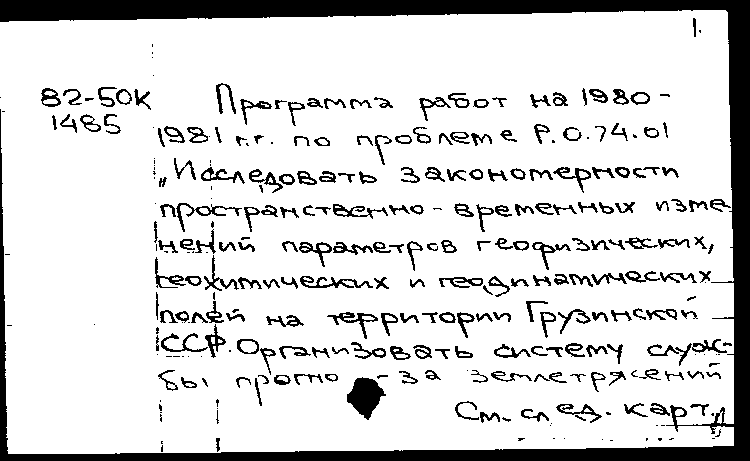 1.
82-50К
1485
Программа работ на 1980-
1981 г.г. по проблеме Р.О.74.01
„Исследовать закономерности
пространственно-временных изме
нений параметров геофизических,
геохимических и геодинамических
полей на территории Грузинской
ССР. Организовать систему служ-
бы прогно -за землетрясений
См. след. карт.